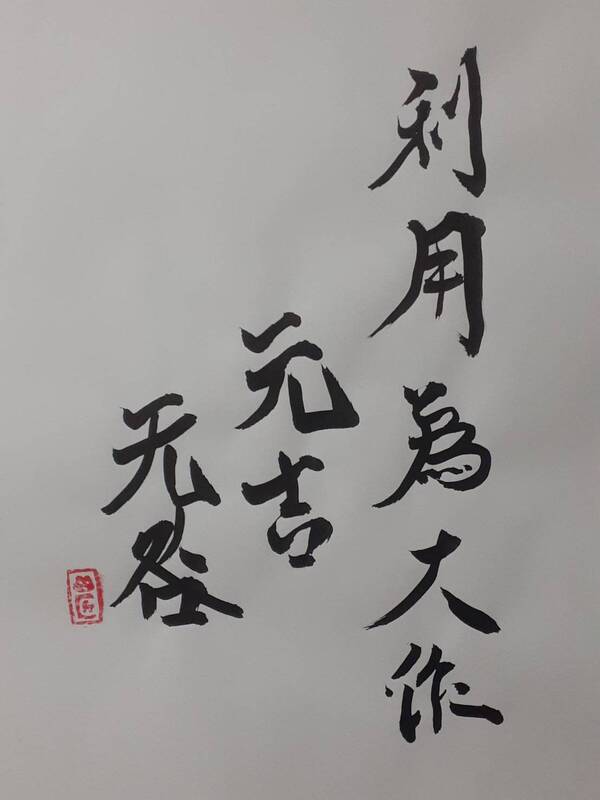 利用為大作
元吉
无咎